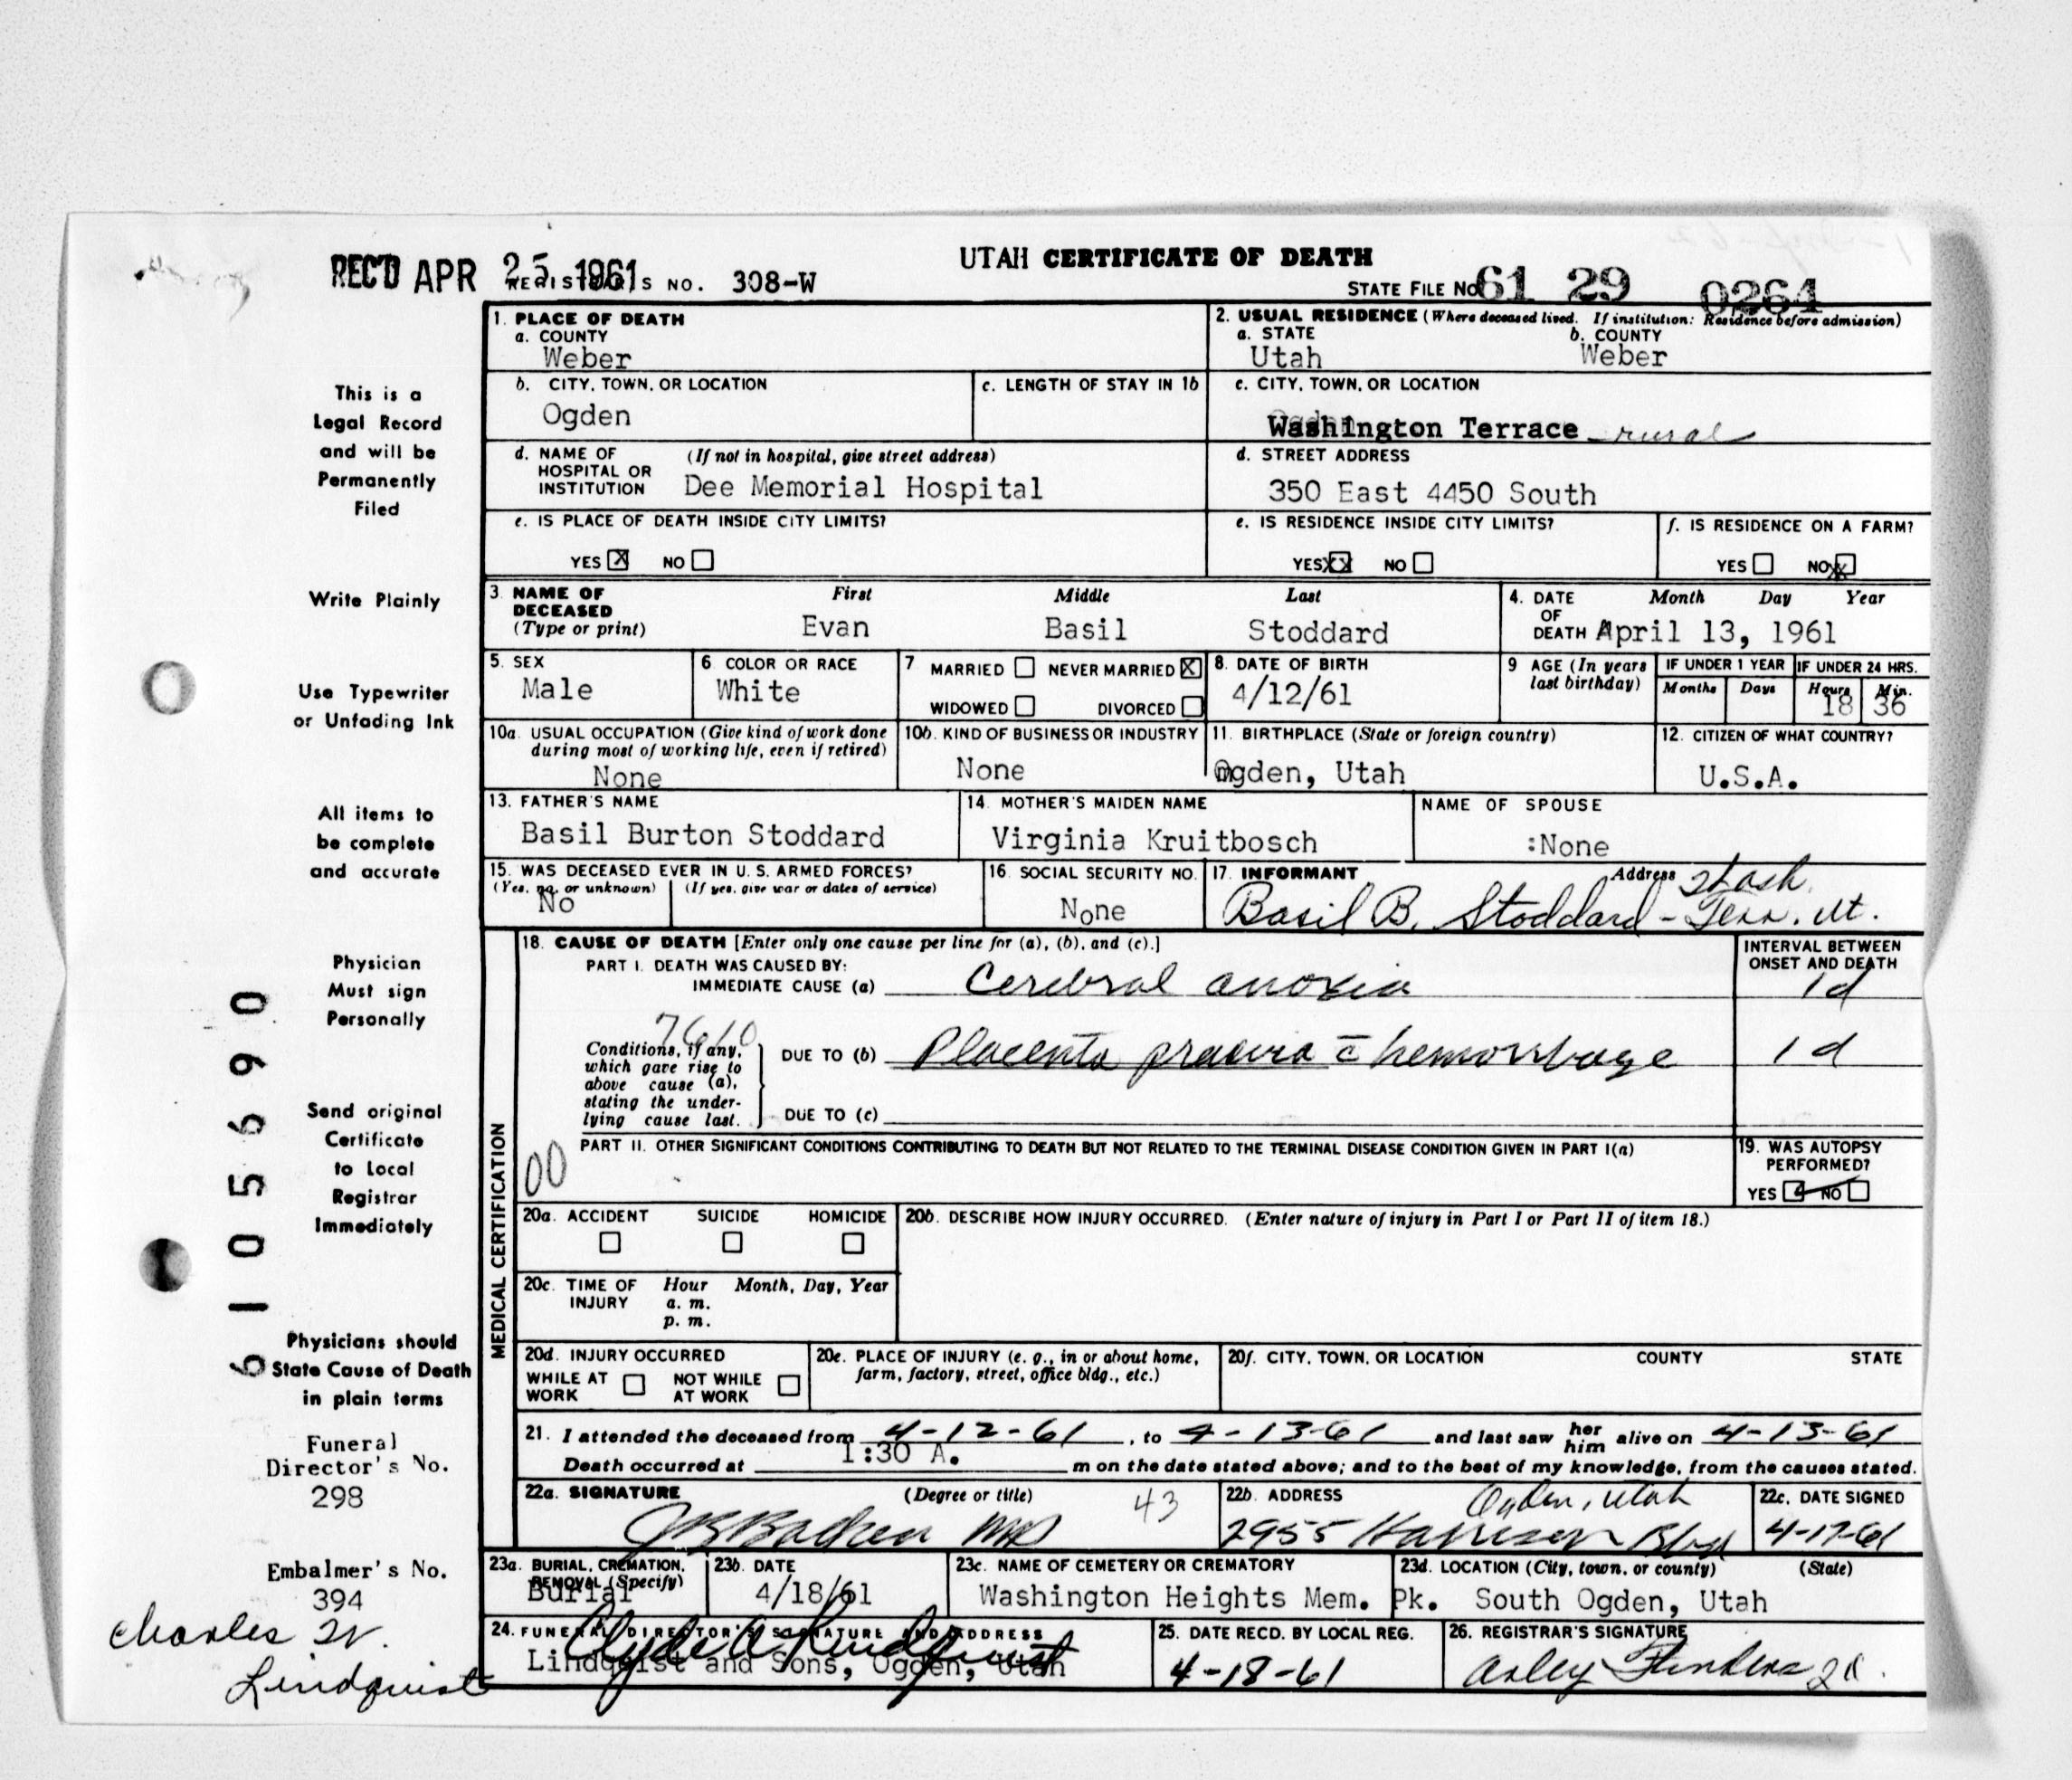 REC'D APR 25 1961
REGISTRAR'S NO. 308-W
UTAH CERTIFICATE OF DEATH
STATE FILE NO. 61 29 0264
This is a
Legal Record
and will be
Permanently
Filed
Write Plainly
Use Typewriter
or Unfading Ink
All items to
be complete
and accurate
Physician
Must sign
Personally
Send original
Certificate
to Local
Registrar
Immediately
Physicians should
State Cause of Death
in plain terms
Funeral
Director's No.
298
Embalmer's No.
394
Charles W.
Lindquist
6105690
1. PLACE OF DEATH
a. COUNTY
Weber
2. USUAL RESIDENCE (Where deceased lived. If institution: Residence before admission)
a. STATE b. COUNTY
Utah Weber
b. CITY, TOWN, OR LOCATION
Ogden
c. LENGTH OF STAY IN 1b
c. CITY, TOWN, OR LOCATION
Washington Terrace rural
d. NAME OF (If not in hospital, give street address)
HOSPITAL OR
INSTITUTION Dee Memorial Hospital
d. STREET ADDRESS
350 East 4450 South
e. IS PLACE OF DEATH INSIDE CITY LIMITS?
YES X NO
e. IS RESIDENCE INSIDE CITY LIMITS?
YES XX NO
f. IS RESIDENCE ON A FARM?
YES NO XX
3. NAME OF DECEASED (Type or print)
First Middle Last
Evan Basil Stoddard
4. DATE OF DEATH Month Day Year
April 13, 1961
5. SEX
Male
6. COLOR OR RACE
White
7 MARRIED NEVER MARRIED X
WIDOWED DIVORCED
8. DATE OF BIRTH
4/12/61
9 AGE (In years last birthday)
IF UNDER 1 YEAR IF UNDER 24 HRS.
Months Days Hours Min.
18 36
10a. USUAL OCCUPATION (Give kind of work done
during most of working life, even if retired)
None
10b. KIND OF BUSINESS OR INDUSTRY
None
11. BIRTHPLACE (State or foreign country)
Ogden, Utah
12. CITIZEN OF WHAT COUNTRY?
U.S.A.
13. FATHER'S NAME
Basil Burton Stoddard
14. MOTHER'S MAIDEN NAME
Virginia Kruitbosch
NAME OF SPOUSE
:None
15. WAS DECEASED EVER IN U.S. ARMED FORCES?
(Yes, no, or unknown) (If yes, give war or dates of service)
No
16. SOCIAL SECURITY NO.
None
17. INFORMANT Address
Basil B. Stoddard - Wash. Terr. Ut.
MEDICAL CERTIFICATION
18. CAUSE OF DEATH [Enter only one cause per line for (a), (b), and (c).]
INTERVAL BETWEEN
ONSET AND DEATH
PART I. DEATH WAS CAUSED BY:
IMMEDIATE CAUSE (a) Cerebral anoxia 1 d
7610
Conditions, if any,
which gave rise to
above cause (a),
stating the under-
lying cause last.
DUE TO (b) Placenta praevia c̄ hemorrhage 1 d
DUE TO (c)
00
PART II. OTHER SIGNIFICANT CONDITIONS CONTRIBUTING TO DEATH BUT NOT RELATED TO THE TERMINAL DISEASE CONDITION GIVEN IN PART I(a)
19. WAS AUTOPSY
PERFORMED?
YES NO
20a. ACCIDENT SUICIDE HOMICIDE
20b. DESCRIBE HOW INJURY OCCURRED. (Enter nature of injury in Part I or Part II of item 18.)
20c. TIME OF INJURY Hour Month, Day, Year
a. m.
p. m.
20d. INJURY OCCURRED
WHILE AT WORK NOT WHILE AT WORK
20e. PLACE OF INJURY (e. g., in or about home,
farm, factory, street, office bldg., etc.)
20f. CITY, TOWN, OR LOCATION COUNTY STATE
21. I attended the deceased from 4-12-61, to 4-13-61 and last saw her him alive on 4-13-61
Death occurred at 1:30 A. m on the date stated above; and to the best of my knowledge, from the causes stated.
22a. SIGNATURE (Degree or title) 43
MD
22b. ADDRESS Ogden, Utah
2955 Harrison Blvd
22c. DATE SIGNED
4-17-61
23a. BURIAL, CREMATION,
REMOVAL (Specify)
Burial
23b. DATE
4/18/61
23c. NAME OF CEMETERY OR CREMATORY
Washington Heights Mem. Pk.
23d. LOCATION (City, town, or county) (State)
South Ogden, Utah
24. FUNERAL DIRECTOR'S SIGNATURE AND ADDRESS
Clyde A Lindquist
Lindquist and Sons, Ogden, Utah
25. DATE RECD. BY LOCAL REG.
4-18-61
26. REGISTRAR'S SIGNATURE